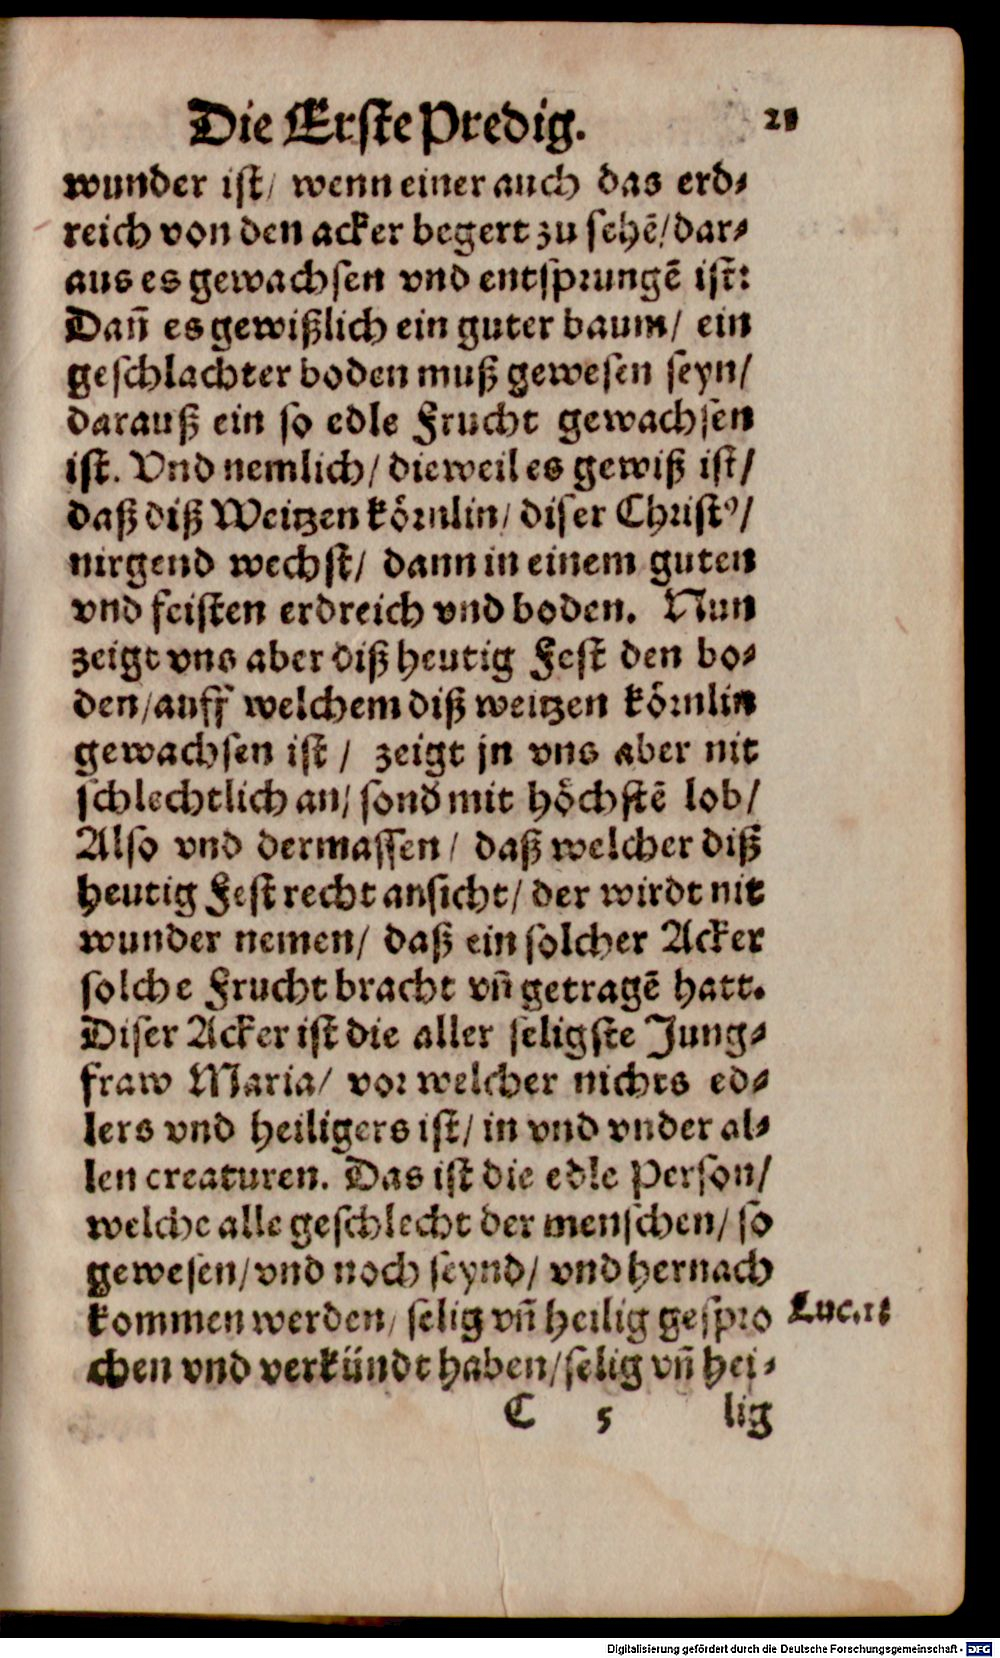 Die Erste Predig. 21
wunder ist/ wenn einer auch das erd-
reich von den acker begert zu sehẽ/dar-
aus es gewachsen vnd entsprungẽ ist:
Dañ es gewißlich ein guter baum/ ein
geschlachter boden muß gewesen seyn/
darauß ein so edle Frucht gewachsen
ist. Vnd nemlich/ dieweil es gewiß ist/
daß diß Weitzen körnlin/ diser Christꝰ/
nirgend wechst/ dann in einem guten
vnd feisten erdreich vnd boden. Nun
zeigt vns aber diß heutig Fest den bo-
den/auff welchem diß weitzen körnlin
gewachsen ist / zeigt jn vns aber nit
schlechtlich an/ sond mit höchstẽ lob/
Also vnd dermassen/ daß welcher diß
heutig Fest recht ansicht/ der wirdt nit
wunder nemen/ daß ein solcher Acker
solche Frucht bracht vñ getragẽ hatt.
Diser Acker ist die aller seligste Jung-
fraw Maria/ vor welcher nichts ed-
lers vnd heiligers ist/ in vnd vnder al-
len creaturen. Das ist die edle Person/
welche alle geschlecht der menschen/ so
gewesen/vnd noch seynd/ vnd hernach
kommen werden/ selig vñ heilig gespro Luc. 11
chen vnd verkündt haben/selig vñ hei-
C 5 lig
Digitalisierung gefördert durch die Deutsche Forschungsgemeinschaft - DFG